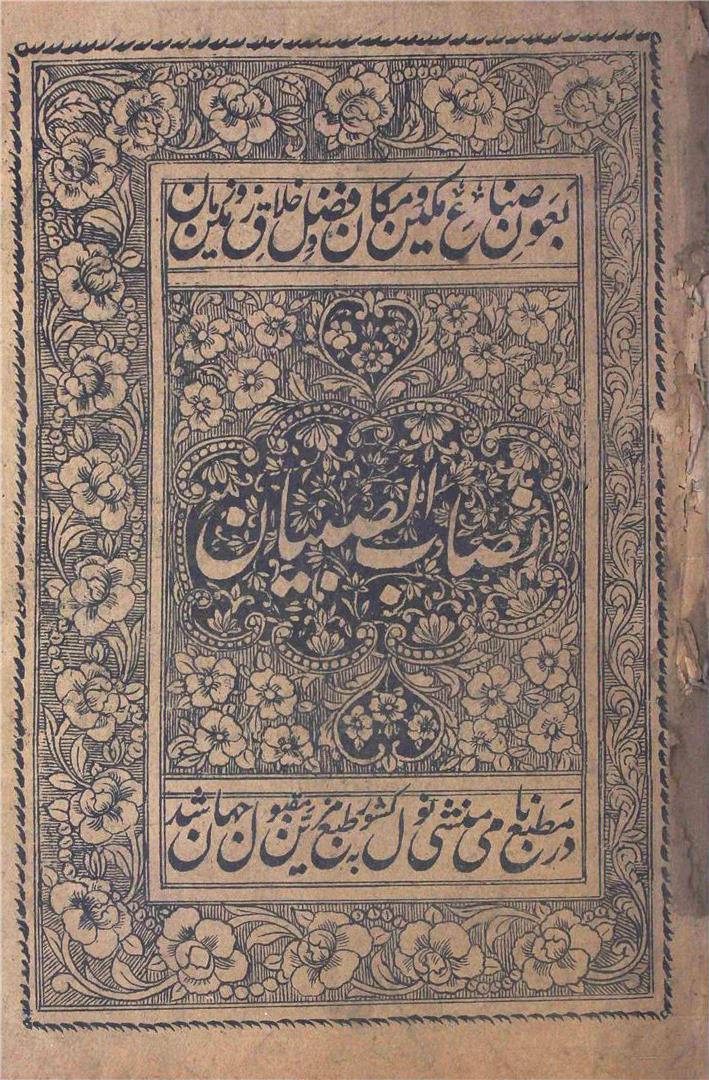 بعون صناع مکین و مکان و فضل خلاق زمین و زمان
نصاب الصبیان
در مطبع نامی منشی نول کشور بطبع مزین مقبول جهان شد